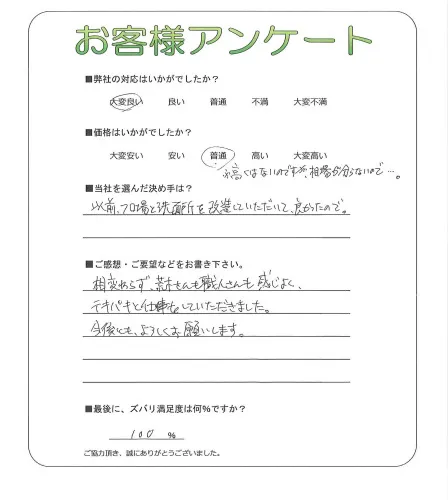 お客様アンケート
■弊社の対応はいかがでしたか？
大変良い 良い 普通 不満 大変不満
■価格はいかがでしたか？
大変安い 安い 普通 高い 大変高い
高くはないのですが、相場が分らないので…。
■当社を選んだ決め手は？
以前、フロ場と洗面所を改造していただいて、良かったので。
■ご感想・ご要望などをお書き下さい。
相変わらず、荒木さんも職人さんも感じよく、
テキパキと仕事をしていただきました。
今後とも、よろしくお願いします。
■最後に、ズバリ満足度は何％ですか？
100 ％
ご協力頂き、誠にありがとうございました。